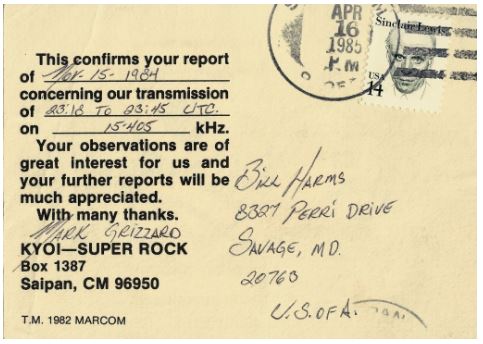 This confirms your report
of Nov-15-1984
concerning our transmission
of 23:18 TO 23:45 UTC.
on 15-405 kHz.
Your observations are of
great interest for us and
your further reports will be
much appreciated.
With many thanks.
MARK GRIZZARD
KYOI—SUPER ROCK
Box 1387
Saipan, CM 96950
T.M. 1982 MARCOM
APR
16
1985
P.M
Sinclair Lewis
USA
14
BILL HARMS
8327 PERRI DRIVE
SAVAGE, MD.
20763
U.S. OF A.